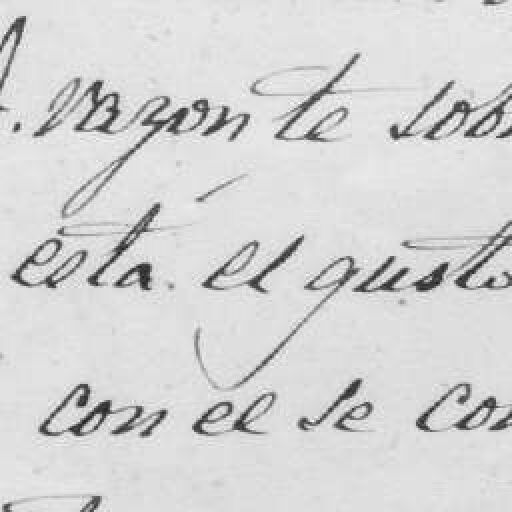 razon te sob
esta. el gusto
con el se con